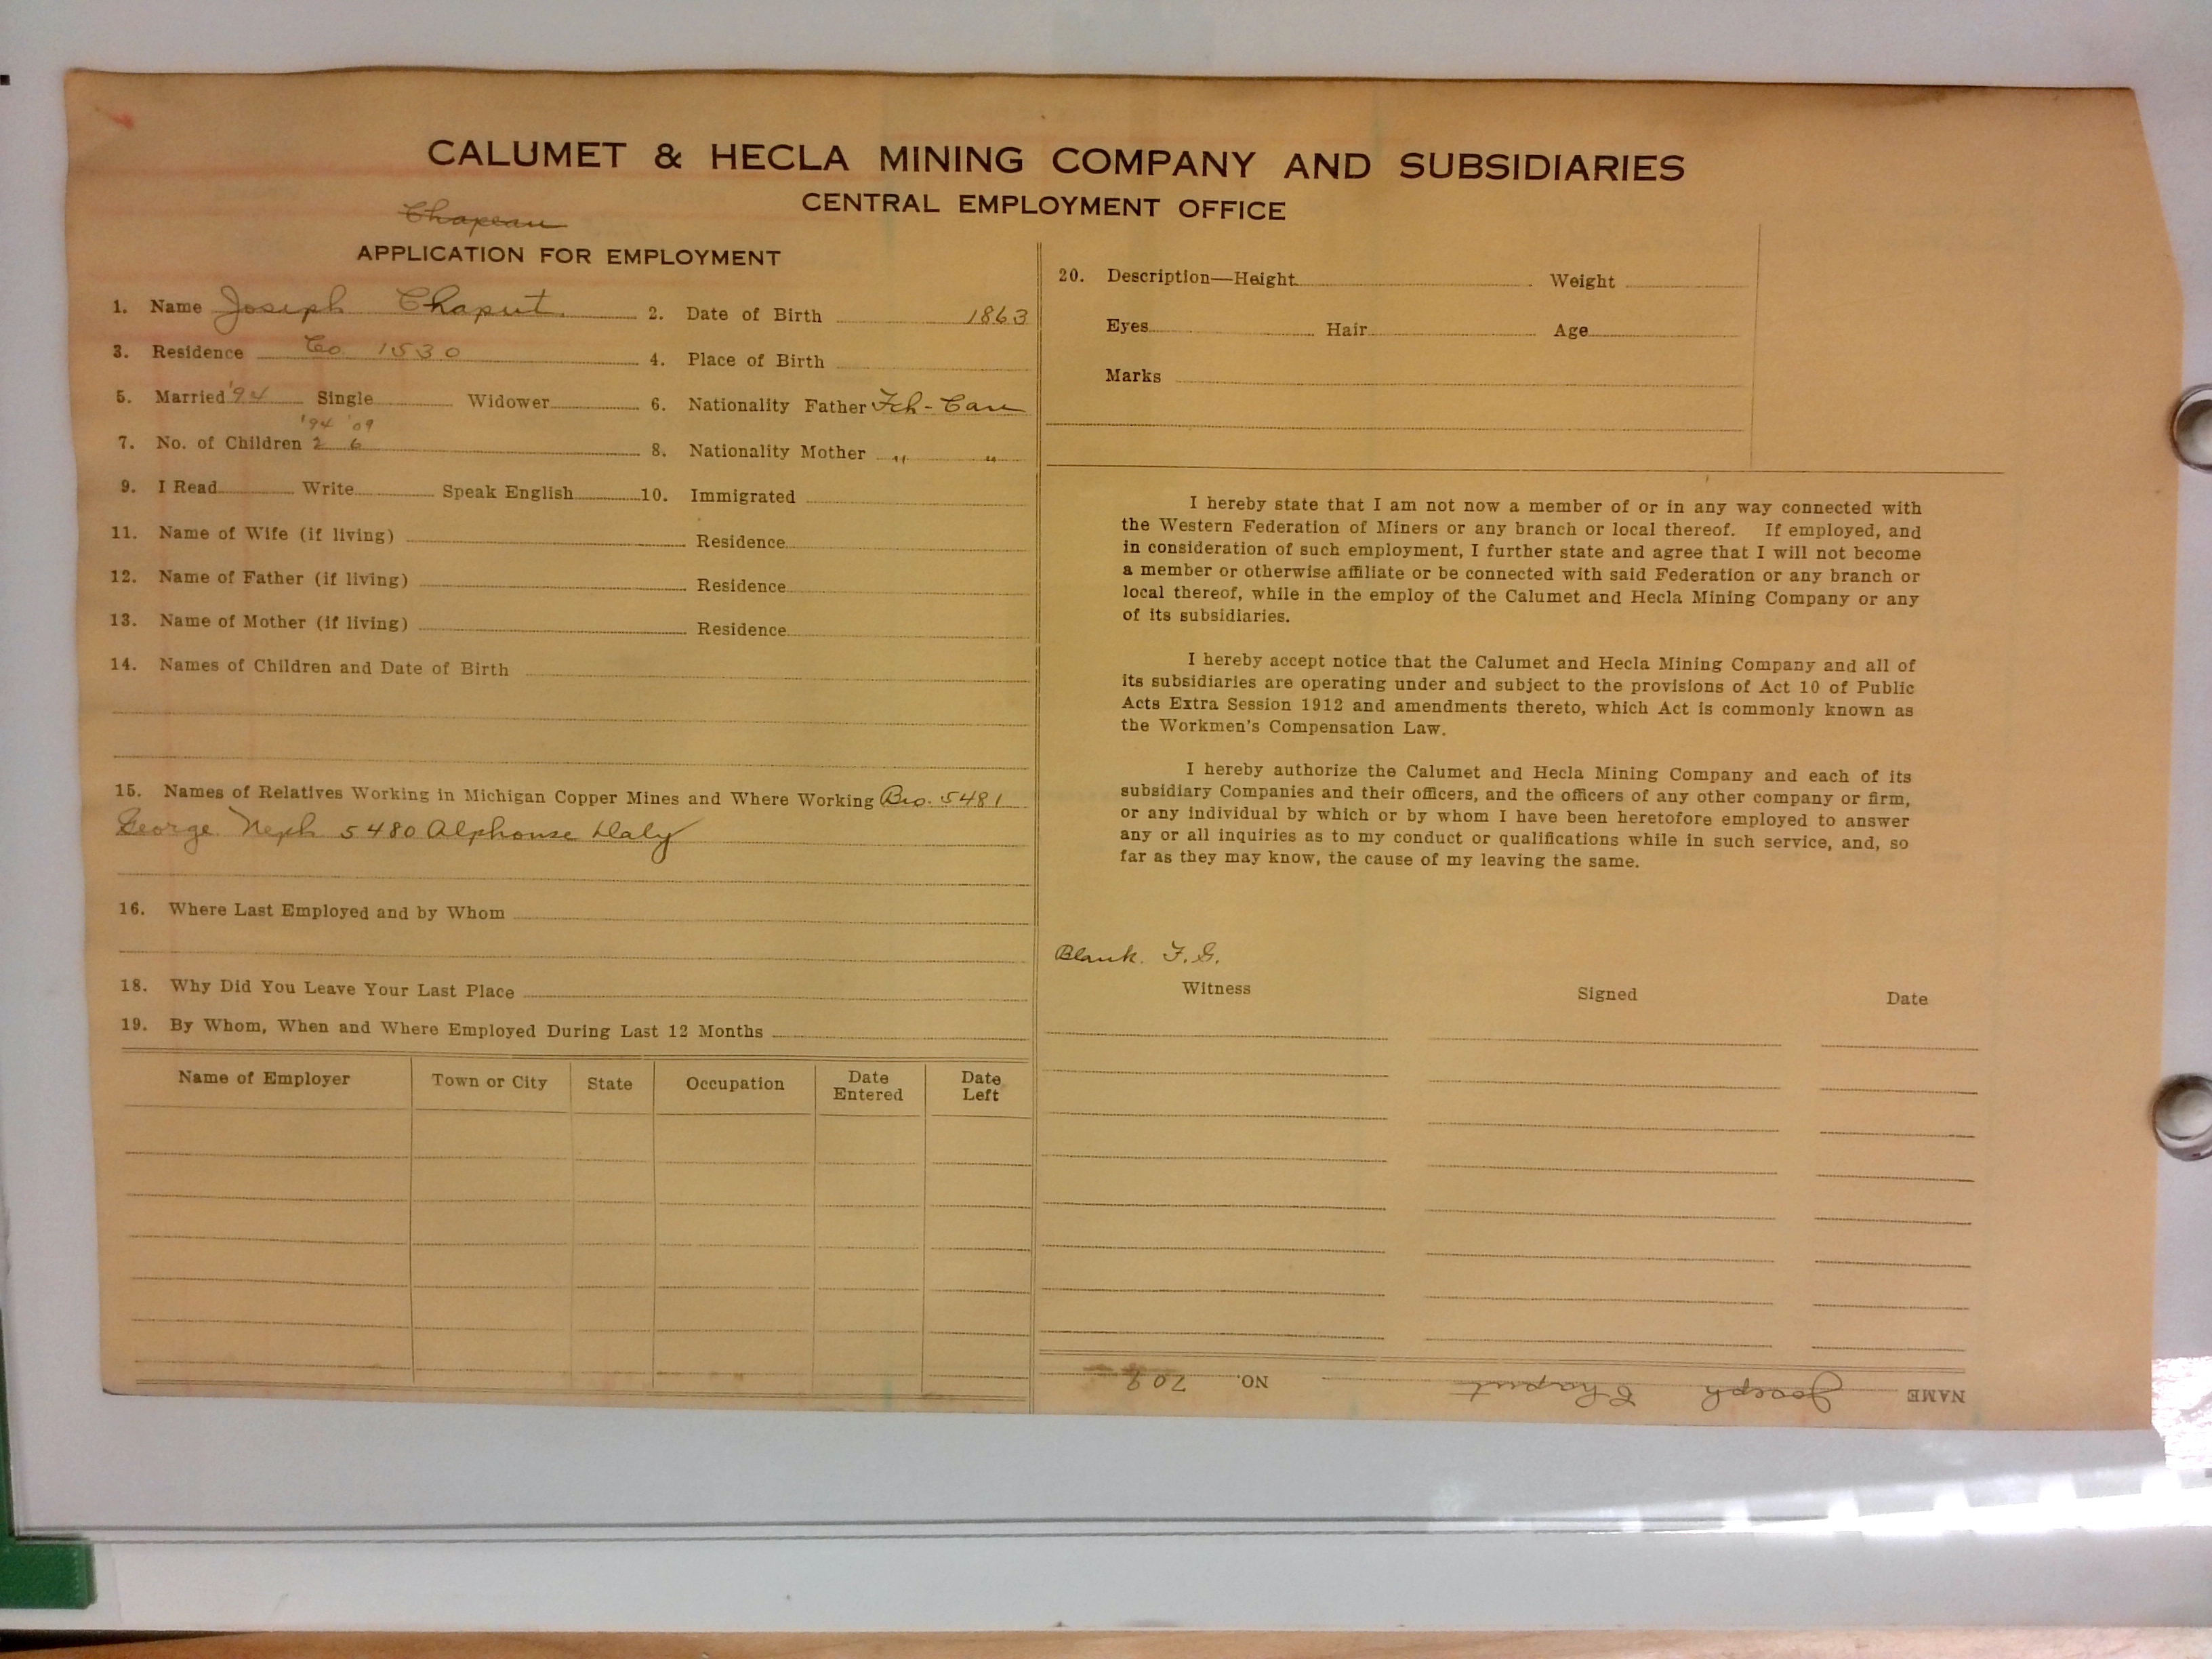 CALUMET & HECLA MINING COMPANY AND SUBSIDIARIES
CENTRAL EMPLOYMENT OFFICE
Chapeau
APPLICATION FOR EMPLOYMENT
1. Name Joseph Chaput 2. Date of Birth 1863
3. Residence Co 1530 4. Place of Birth
5. Married '94 Single Widower 6. Nationality Father Fch-Can
'94 '09
7. No. of Children 2 6 8. Nationality Mother " "
9. I Read Write Speak English 10. Immigrated
11. Name of Wife (if living) Residence
12. Name of Father (if living) Residence
13. Name of Mother (if living) Residence
14. Names of Children and Date of Birth
15. Names of Relatives Working in Michigan Copper Mines and Where Working Bro. 5481
George Neph 5480 Alphonse Daly
16. Where Last Employed and by Whom
18. Why Did You Leave Your Last Place
19. By Whom, When and Where Employed During Last 12 Months
Name of Employer Town or City State Occupation Date Entered Date Left
20. Description—Height Weight
Eyes Hair Age
Marks
I hereby state that I am not now a member of or in any way connected with
the Western Federation of Miners or any branch or local thereof. If employed, and
in consideration of such employment, I further state and agree that I will not become
a member or otherwise affiliate or be connected with said Federation or any branch or
local thereof, while in the employ of the Calumet and Hecla Mining Company or any
of its subsidiaries.
I hereby accept notice that the Calumet and Hecla Mining Company and all of
its subsidiaries are operating under and subject to the provisions of Act 10 of Public
Acts Extra Session 1912 and amendments thereto, which Act is commonly known as
the Workmen's Compensation Law.
I hereby authorize the Calumet and Hecla Mining Company and each of its
subsidiary Companies and their officers, and the officers of any other company or firm,
or any individual by which or by whom I have been heretofore employed to answer
any or all inquiries as to my conduct or qualifications while in such service, and, so
far as they may know, the cause of my leaving the same.
Blank. F.G.
Witness Signed Date
NAME Joseph Chaput NO. 708